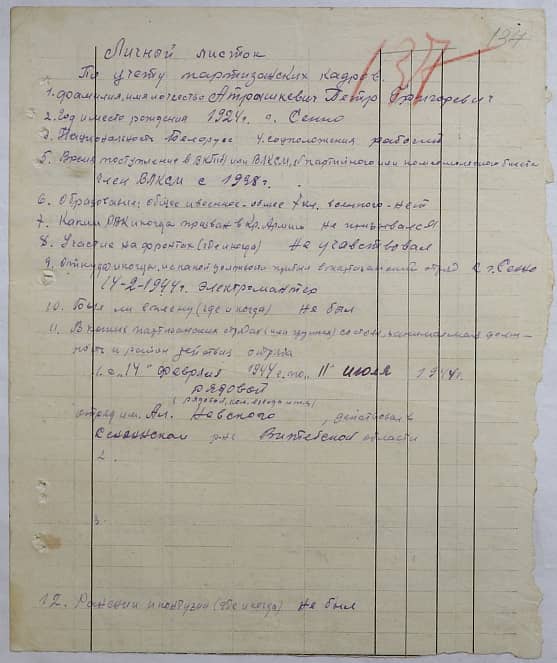 137
134
Личной листок
По учету партизанских кадров
1. Фамилия, имя и отчество Атрашкевич Петр Григоревич
2. Год и место рождения 1924 г. г. Сенно
3. Национальность Белорус 4. соцположения рабочий
5. Время поступление в ВКП(б) или ВЛКСМ, № партийного или комсомольского билета
член ВЛКСМ с 1938 г.
6. Образование: общее и военное - общее 7 кл. военного - нет
7. Каким РВК и когда призван в Кр. Армию не призывался
8. Участие на фронтах (где и когда) Не учавствовал
9. Откуда и когда, на какой должности прибыл в партизанский отряд с г. Сенно
14-2-1944г. Электромантер
10. Был ли в плену (где и когда) не был
11. В каких партизанских отрядах (или группах) состоял, занимаемая долж-
ность и район действия отряда
1. с "14" февраля 1944 г. по "11" июля 1944г.
рядовой
отряд им. Ал. Невского, действовал в
Сеннинском р-не Витебской области
2.
3.
12. Ранении и контузии (где и когда) не был